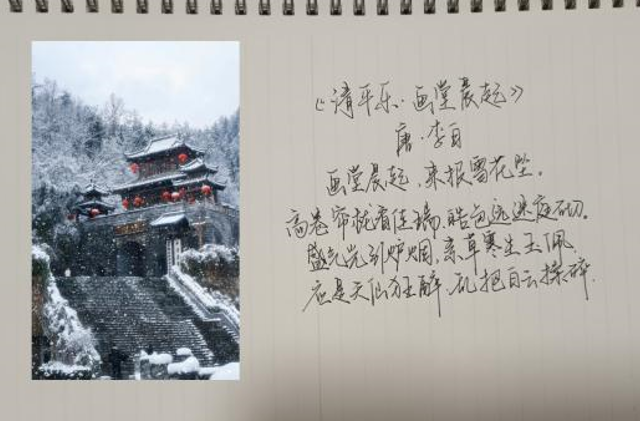 《清平乐·画堂晨起》
唐·李白
画堂晨起，来报雪花坠。
高卷帘栊看佳瑞，皓色远迷庭砌。
盛气光引炉烟，素草寒生玉佩。
应是天仙狂醉，乱把白云揉碎.